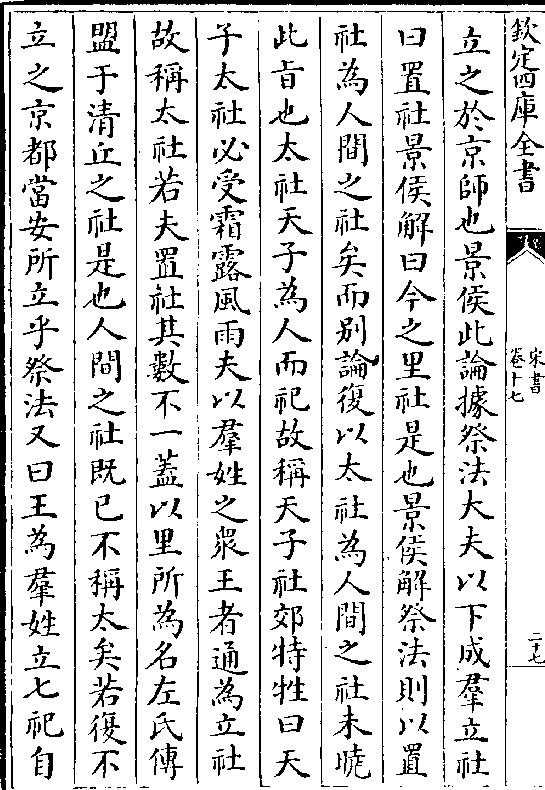 欽定四庫全書
宋書
卷十七
二十七
立之於京師也景侯此論據祭法大夫以下成羣立社
曰置社景侯解曰今之里社是也景侯解祭法則以置
社為人間之社矣而别論復以太社為人間之社未曉
此旨也太社天子為人而祀故稱天子社郊特牲曰天
子太社必受霜露風雨夫以羣姓之衆王者通為立社
故稱太社若夫置社其數不一蓋以里所為名左氏傳
盟于清丘之社是也人間之社既已不稱太矣若復不
立之京都當安所立乎祭法又曰王為羣姓立七祀自